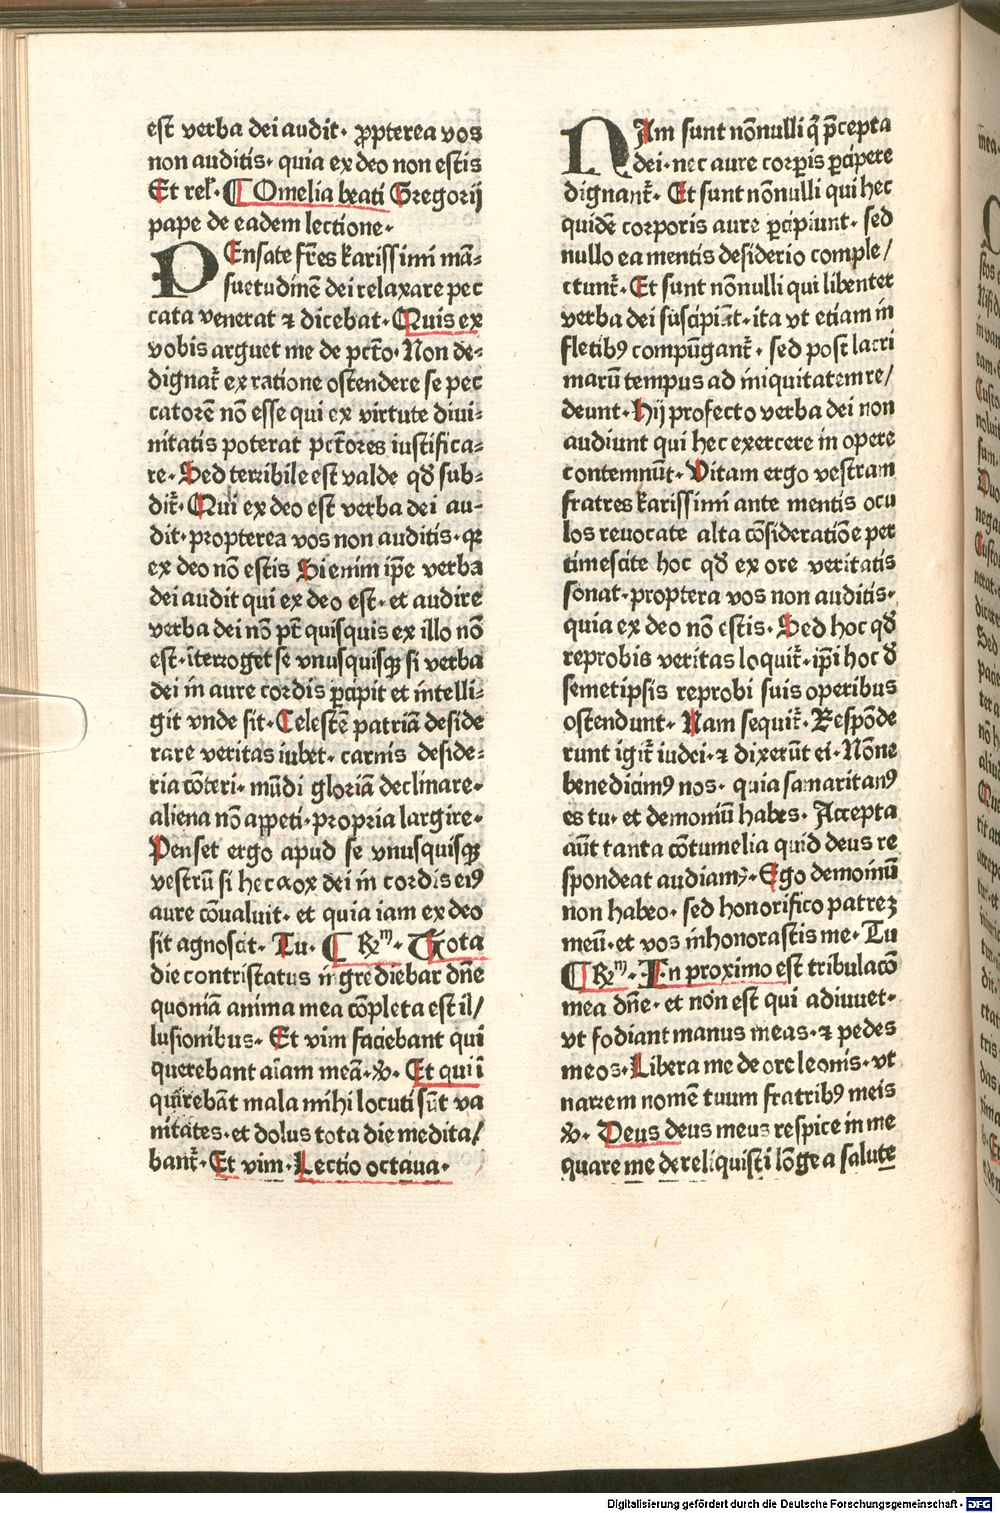 est verba dei audit· ꝓpterea vos
non auditis· quia ex deo non estis
Et rel̃· ¶ Omelia beati Gregorij
pape de eadem lectione·
PEnsate fr̄es karissimi mā⸗
suetudinē dei relaxare pec
cata venerat ⁊ dicebat· Quis ex
vobis arguet me de pctō· Non de⸗
dignat᷑ ex ratione ostendere se pec
catorē nō esse qui ex virtute diui⸗
nitatis poterat pctōres iustifica⸗
re· Sed terribile est valde qd̄ sub⸗
dit᷑· Qui ex deo est verba dei au⸗
dit· propterea vos non auditis· qꝛ
ex deo nō estis Si enim ip̄e verba
dei audit qui ex deo est· et audire
verba dei nō pt̄ quisquis ex illo nō
est· īterroget se vnusquisqꝫ si verba
dei in aure cordis ꝑcipit et intelli⸗
git vnde sit· Celestē patriā deside
rare veritas iubet· carnis deside⸗
ria cōteri· mūdi gloriā declinare·
aliena nō appeti· propria largire·
Penset ergo apud se vnusquisqꝫ
vestrū si hec vox dei in cordis eiꝰ
aure cōualuit· et quia iam ex deo
sit agnoscat· Tu· ¶ Rm· Tota
die contristatus ingrediebar dn̄e
quoniā anima mea cōpleta est il/
lusionibus· Et vim faciebant qui
querebant aīam meā· ꝟ· Et qui ī
quirebāt mala mihi locuti sūt va
nitates· et dolus tota die medita/
bant᷑· Et vim· Lectio octaua·
NAm sunt nōnulli q̄ p̄cepta
dei· nec aure corꝑis ꝑcipere
dignant᷑· Et sunt nōnulli qui hec
quidē corporis aure ꝑcipiunt· sed
nullo ea mentis desiderio comple/
ctunt᷑· Et sunt nōnulli qui libenter
verba dei suscipiāt· ita vt etiam in
fletibꝰ compūgant᷑· sed post lacri
marū tempus ad iniquitatem re/
deunt· Hij profecto verba dei non
audiunt qui hec exercere in opere
contemnūt· Vitam ergo vestram
fratres karissimi ante mentis ocu
los reuocate alta cōsideratiōe per
timescite hoc qd̄ ex ore veritatis
sonat· proptera vos non auditis·
quia ex deo nō estis· Sed hoc qd̄
reprobis veritas loquit᷑· ip̄i hoc ꝺ
semetipsis reprobi suis operibus
ostendunt· Nam sequit᷑· Respōde
runt igit᷑ iudei· ⁊ dixerūt ei· Nōne
benedicimꝰ nos· quia samaritanꝰ
es tu· et demoniū habes· Accepta
aūt tanta cōtumelia quid deus re
spondeat audiamꝰ· Ego demoniū
non habeo· sed honorifico patreꝫ
meū· et vos inhonorastis me· Tu
¶ Rm· In proximo est tribulacō
mea dn̄e· et non est qui adiuuet·
vt fodiant manus meas· ⁊ pedes
meos· Libera me de ore leonis· vt
narrem nomē tuum fratribꝰ meis
ꝟ· Deus deus meus respice in me
quare me dereliquisti lōge a salute
Digitalisierung gefördert durch die Deutsche Forschungsgemeinschaft - DFG